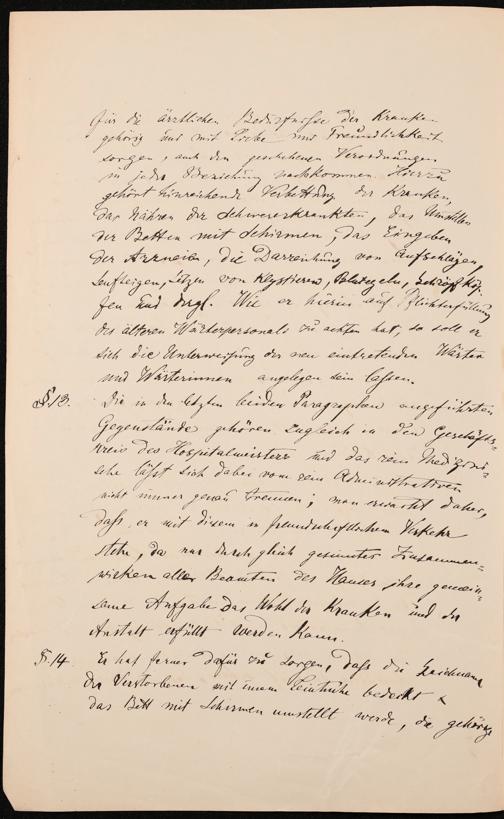 für die ärztlichen Bedürfnisse der Kranken
gehörig und mit Liebe und Freundlichkeit
sorgen, auch den Verordnungen
in jeder Beziehung nachkommen. Hierzu
gehört hinreichende Verbettung der Kranken,
das Nähren der Schwererkrankten, das Umstellen
der Betten mit Schirmen, das Eingeben
der Arzneien, die Darreichung von Aufschlägen,
Senfteigen, Setzen von Klystieren, Blutegeln, Schröpfköp-
fen und drgl. Wie er hierin auf Pflichterfüllung
des älteren Wärterpersonals zu achten hat, so soll er
sich die Unterweisung der neu eintretenden Wärter
und Wärterinnen angelegen sein lassen.
§. 13. Die in den letzten beiden Paragraphen angeführten
Gegenstände gehören zugleich in den Geschäfts-
kreis des Hospitalmeisters und das rein Medizini-
sche läßt sich dabei vom rein Administrativen
nicht immer genau trennen; man erwartet daher,
daß er mit diesem in freundschaftlichem Verkehr
stehe, da nur durch gleich gesinntes Zusammen-
wirken aller Beamten des Hauses ihre gemein-
same Aufgabe das Wohl der Kranken und der
Anstalt erfüllt werden kann.
§. 14 Er hat ferner dafür zu sorgen, daß die Leichname
der Verstorbenen mit einem Leintuche bedeckt &
das Bett mit Schirmen umstellt werde, die gehörige